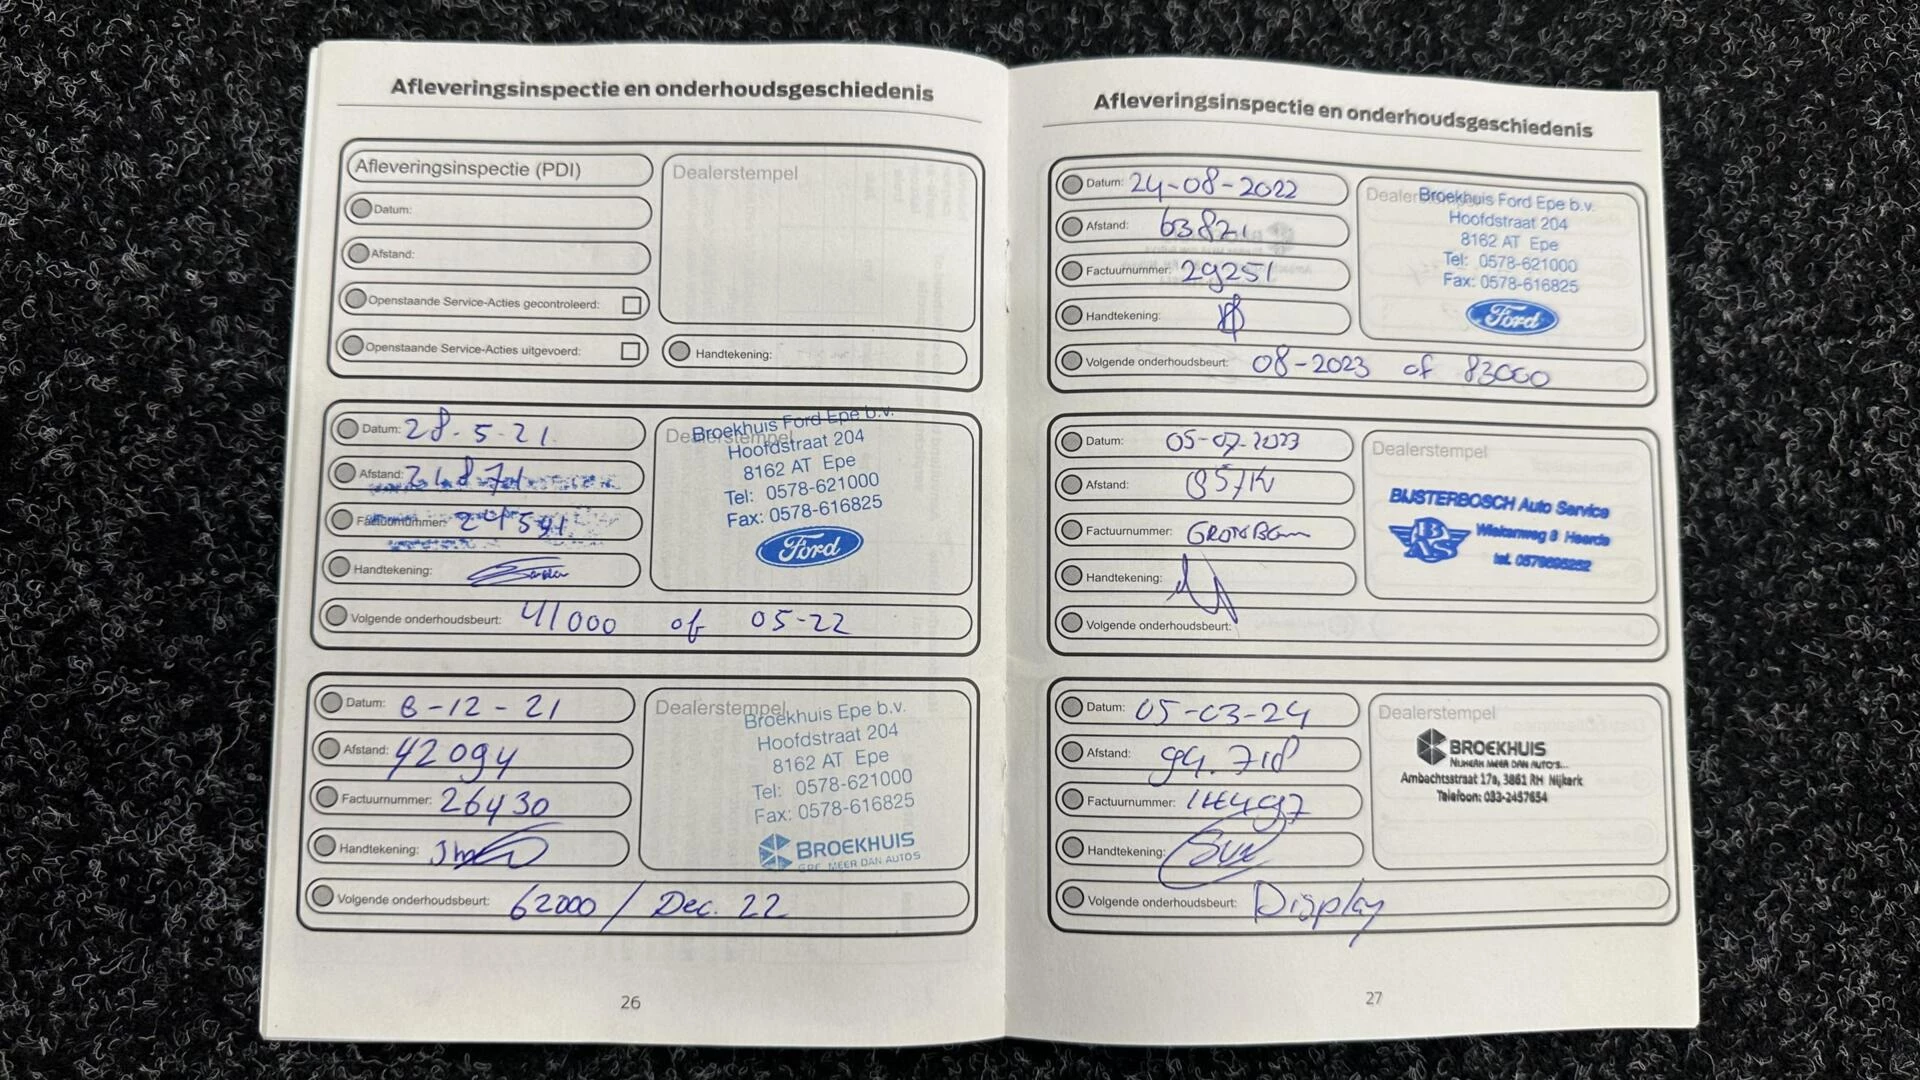 Afleveringsinspectie en onderhoudsgeschiedenis
Afleveringsinspectie (PDI)
Datum:
Afstand:
Openstaande Service-Acties gecontroleerd:
Openstaande Service-Acties uitgevoerd:
Dealerstempel
Handtekening:
Datum: 28-5-21
Afstand:
Factuurnummer:
Handtekening:
Volgende onderhoudsbeurt: 41000 of 05-22
Dealerstempel
Broekhuis Ford Epe b.v.
Hoofdstraat 204
8162 AT Epe
Tel: 0578-621000
Fax: 0578-616825
Ford
Datum: 8-12-21
Afstand: 42094
Factuurnummer: 26430
Handtekening:
Volgende onderhoudsbeurt: 62000 / Dec. 22
Dealerstempel
Broekhuis Epe b.v.
Hoofdstraat 204
8162 AT Epe
Tel: 0578-621000
Fax: 0578-616825
BROEKHUIS
MEER DAN AUTO'S
26
Afleveringsinspectie en onderhoudsgeschiedenis
Datum: 24-08-2022
Afstand: 63821
Factuurnummer: 29251
Handtekening:
Volgende onderhoudsbeurt: 08-2023 of 83000
Dealerstempel
Broekhuis Ford Epe b.v.
Hoofdstraat 204
8162 AT Epe
Tel: 0578-621000
Fax: 0578-616825
Ford
Datum: 05-07-2023
Afstand:
Factuurnummer:
Handtekening:
Volgende onderhoudsbeurt:
Dealerstempel
BIJSTERBOSCH Auto Service
BAS
Wiekenweg 8 Heerde
tel.
Datum: 05-03-24
Afstand: 94.718
Factuurnummer:
Handtekening:
Volgende onderhoudsbeurt: Display
Dealerstempel
BROEKHUIS
NIJKERK MEER DAN AUTO'S...
Ambachtsstraat 17a, 3861 RH Nijkerk
Telefoon: 033-2457654
27